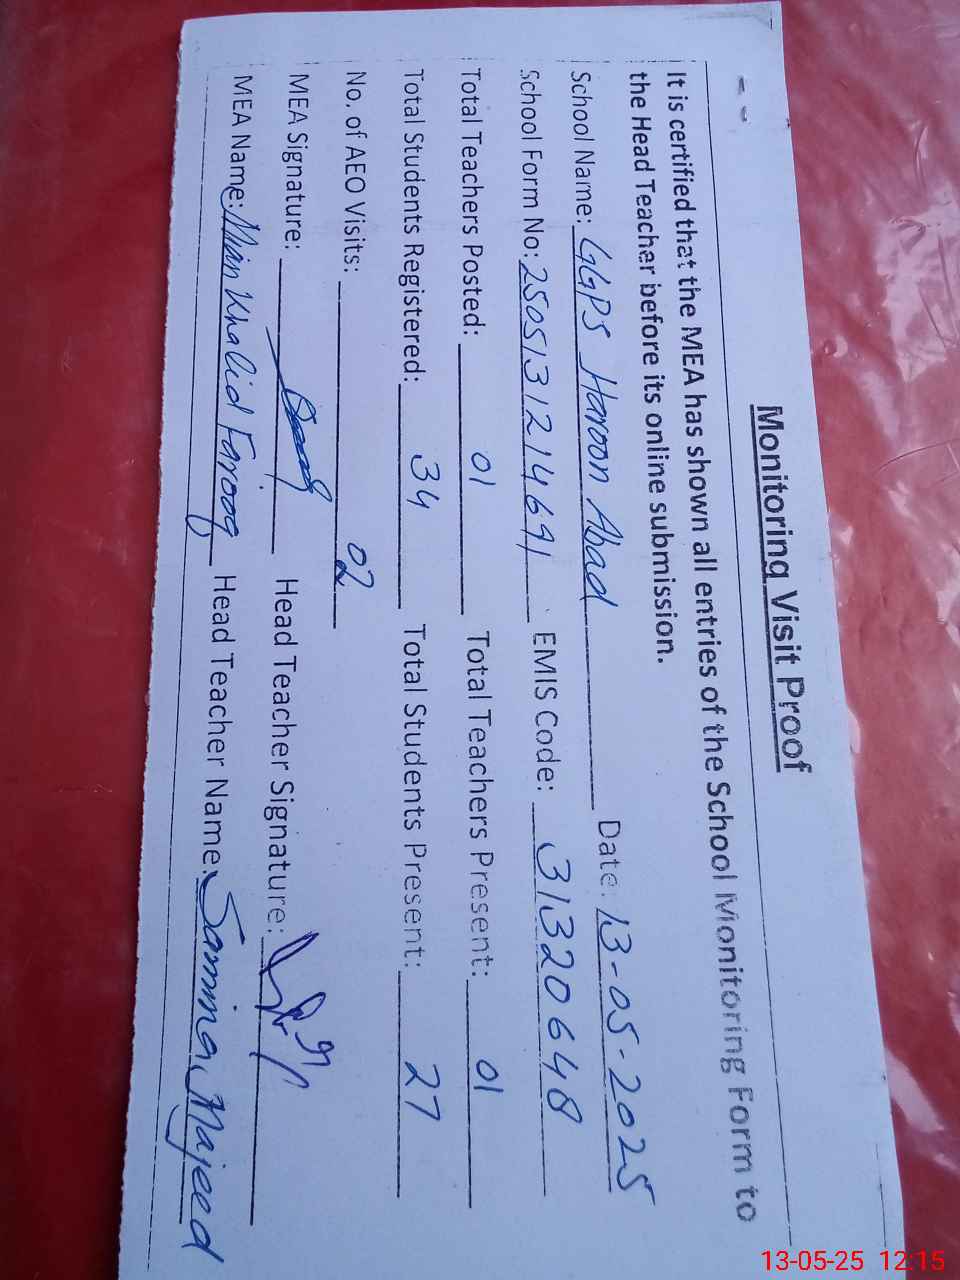 Monitoring Visit Proof
It is certified that the MEA has shown all entries of the School Monitoring Form to
the Head Teacher before its online submission.
School Name: GGPS Haroon Abad Date: 13-05-2025
School Form No: 2505131214691 EMIS Code: 31320648
Total Teachers Posted: 01 Total Teachers Present: 01
Total Students Registered: 34 Total Students Present: 27
No. of AEO Visits: 02
MEA Signature: Head Teacher Signature:
MEA Name: Mian Khalid Farooq Head Teacher Name: Samina Majeed
13-05-25 12:15